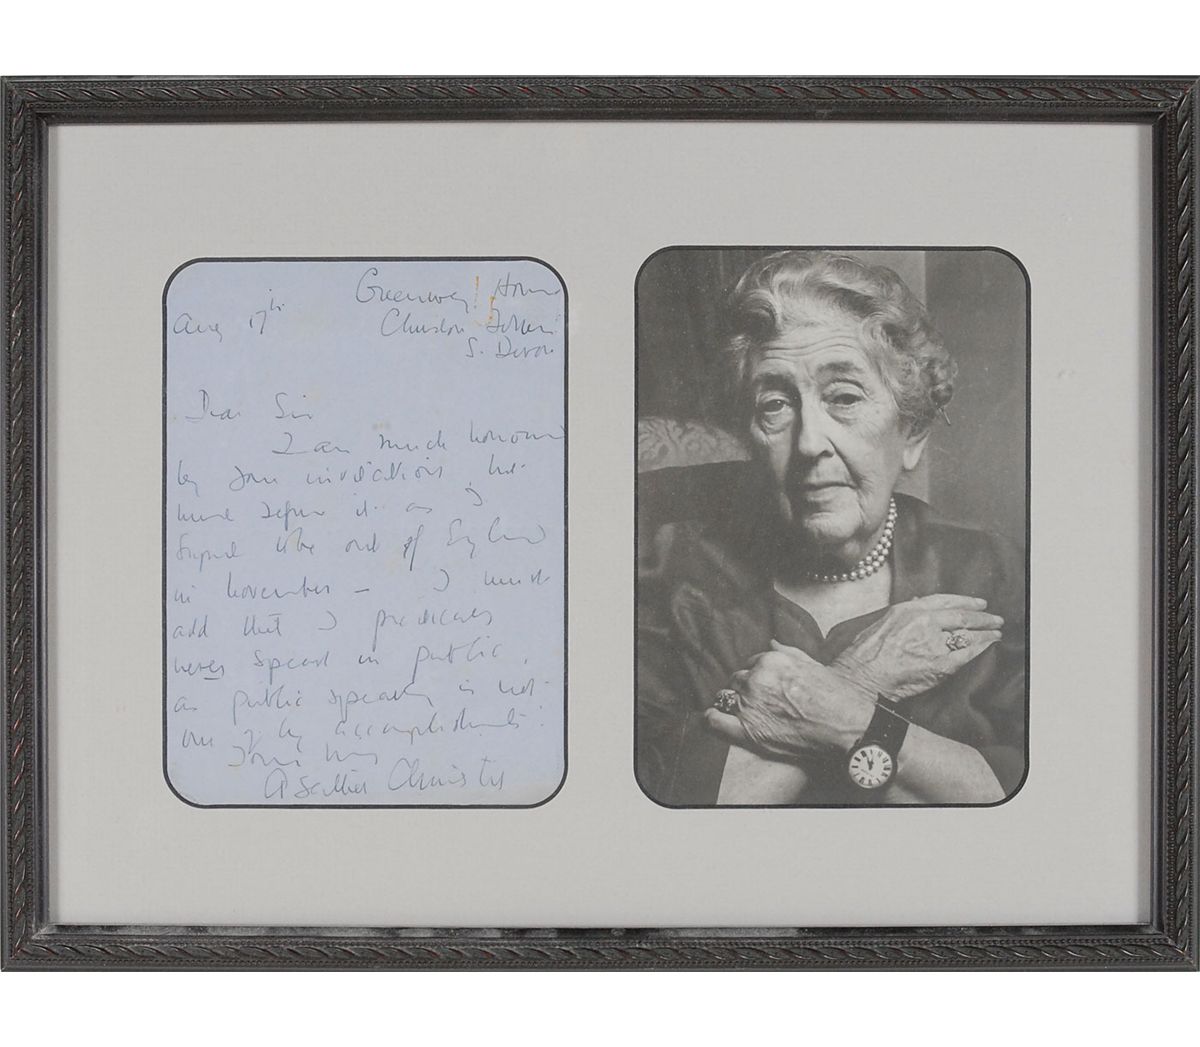 Greenway House
Aug 17th Churston Ferrers
S. Devon
Dear Sir
I am much honoured
by your invitation, but
must refuse it as I
expect to be out of England
in November – I must
add that I
never speak in public,
as public speaking is not
one of my accomplishments!
Yours truly
Agatha Christie